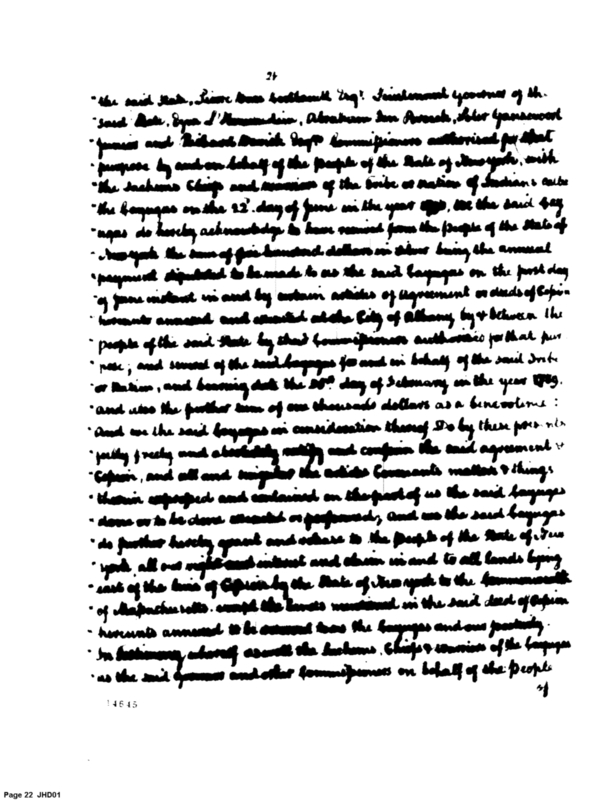 "the said State, Pierre Van Cortlandt Esqr. Lieutenant Governor of th.
"said State, Ezra L'Hommedieu, Abraham Ten Broeck, Peter Gansevoort
"junior and Richard Varick Esqrs Commissioners authorised for that
"purpose by and on behalf of the People of the State of New york, with
"the Sachems Chiefs and warriors of the tribe or nation of Indians
"the Cayugas on the 22d. day of June in the year We the said Cay
"ugas do hereby acknowledge to have received from the People of the State of
"New york the sum of five hundred dollars in silver being the annual
"payment stipulated to be made to us the said Cayugas on the first day
"of June instant in and by certain articles of agreement or deeds of Cession
"hereunto annexed and executed at the City of Albany by & between the
"people of the said State by their Commissioners authorised for that pur
"pose; and several of the said Cayugas for and in behalf of the said Tribe
"or Nation, and bearing date the 25th. day of February in the year 1789.
"And also the further sum of one thousand dollars as a benevolence:
"And we the said Cayugas in consideration thereof Do by these presents
"fully freely and absolutely ratify and confirm the said agreement &
"Cession, and all and singular the articles Covenants matters & things
"therein expressed and contained on the part of us the said Cayugas
"done or to be done executed or performed, And we the said Cayugas
"do further hereby grant and release to the People of the State of New
"york, all our right and interest and claim in and to all lands lying
"east of the line of Cession by the State of New york to the Commonwealth
"of Massachusetts. except the lands mentioned in the said deed of Cession
"hereunto annexed to be reserved to us the Cayugas and our posterity.
"In testimony whereof as well the Sachems, Chiefs & warriors of the Cayugas
"as the said governor and other Commissioners on behalf of the People
of
14645
Page 22 JHD01